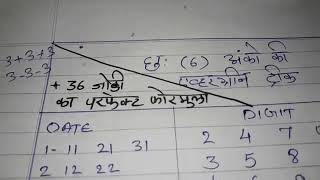 3+3+3
3-3-3
छः (6) अंको की
एव्हरग्रीन ट्रीक
+ 36 जोडी
का परफेक्ट फोरमुला
DATE
DIGIT
1- 11 21 31
2 4 7
2 12 22
3 5 8